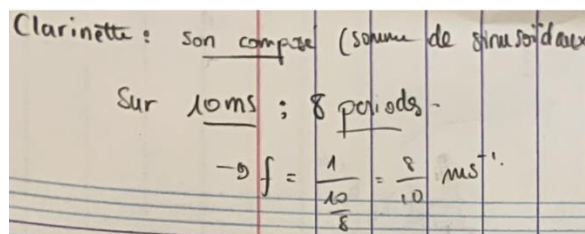 Clarinette : son composé (somme de sinusoïdaux
Sur 10ms ; 8 periods.
→ f = 1 / (10/8) = 8/10 ms⁻¹.